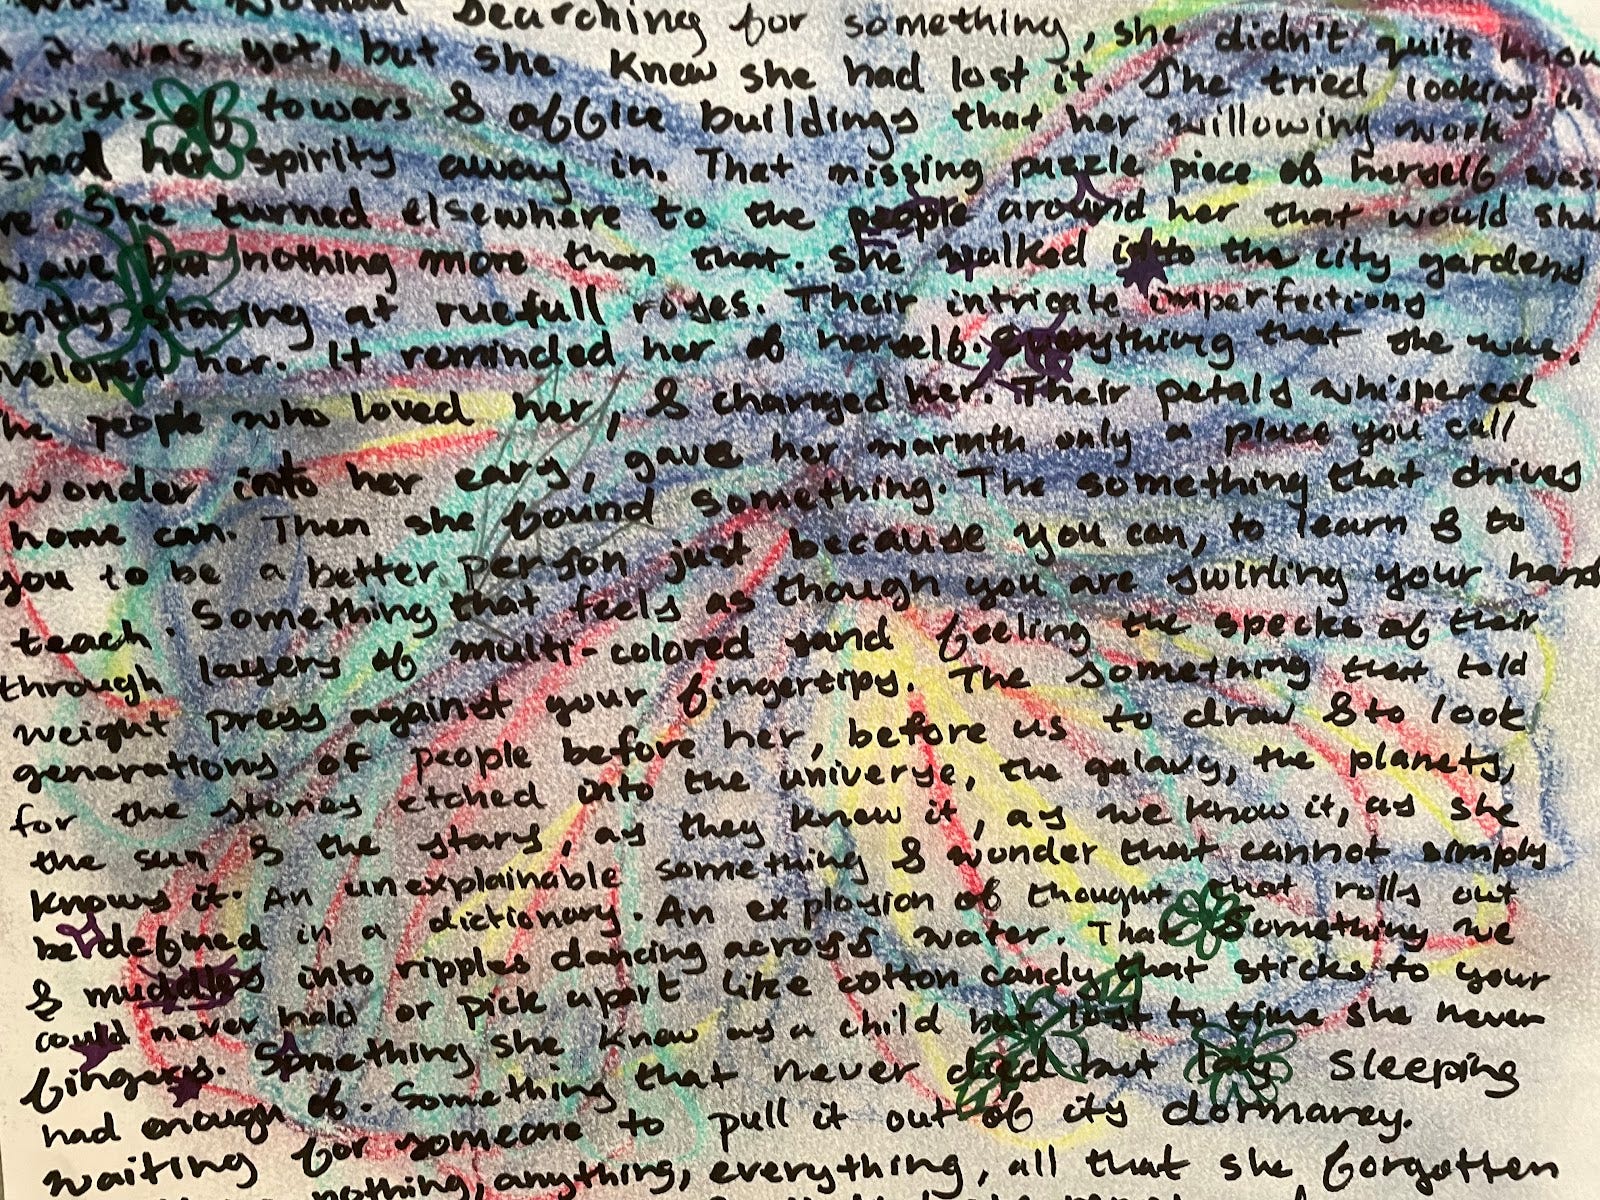 was a woman searching for something, she didn't quite know
it was yet, but she knew she had lost it. She tried looking in
twists of towers & office buildings that her willowing work
shed her spirity away in. That missing puzzle piece of herself was
She turned elsewhere to the people around her that would
wave but nothing more than that. She walked into the city gardens
staring at ruefull roses. Their intricate imperfections
her. It reminded her of herself. Everything that she was,
people who loved her, & changed her. Their petals whispered
wonder into her ears, gave her warmth only a place you call
home can. Then she found something. The something that drives
you to be a better person just because you can, to learn & to
teach. Something that feels as though you are swirling your hands
through layers of multi-colored sand feeling the specks of their
weight press against your fingertips. The something that told
generations of people before her, before us to draw & to look
for the stories etched into the universe, the galaxy, the planets,
the sun & the stars, as they knew it, as we know it, as she
knows it. An unexplainable something & wonder that cannot simply
be defined in a dictionary. An explosion of thought that rolls out
& muddles into ripples dancing across water. That Something we
could never hold or pick apart like cotton candy that sticks to your
fingers. Something she knew as a child but lost to time she never
had enough of. Something that never died but lay sleeping
waiting for someone to pull it out of its dormancy.
nothing, anything, everything, all that she forgotten